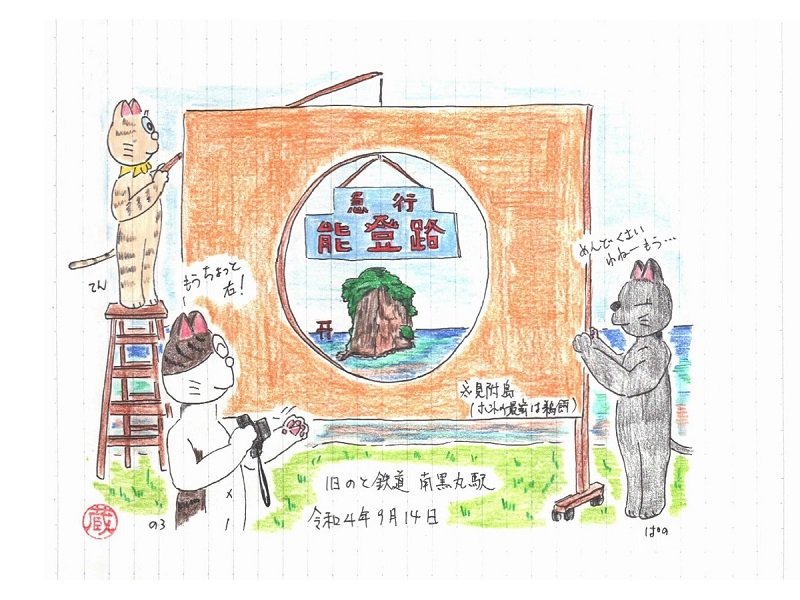 急行
能登路
めんでくさい
わねーもう…
てん
もうちょっと
右!
※見附島
(ホントの最寄は鵜飼)
旧のと鉄道 南黒丸駅
令和4年9月14日
蔵
のろ
ぱの